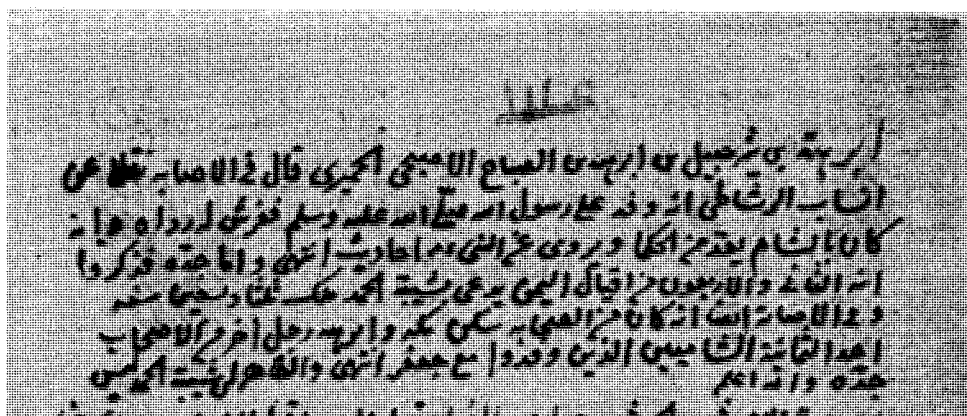 أبرهة بن شرحبيل بن ابرهه بن الصباح الاصبحي الحميري قال في الاصابه نقلا عن
انساب الرشاطي انه وفد على رسول الله صلى الله عليه وسلم ففرش له رداه وانه
كان بالشام يعد من الحكما وروى عن النبي احاديث انتهى واما جده فذكروا
انه الثانى والاربعون من اقيال اليمن يدعى شيبة الحمد ملك ثلثا وسبعين سنه
وفي الاصابة ايضا انه كان من الصحابه سكن مكه وابرهه رجل اخر من الاصحاب
احد الثمانية الشاميين الذين وفدوا مع جعفر انتهى والظاهر ان شيبة الحمد ليس
جده والله اعلم